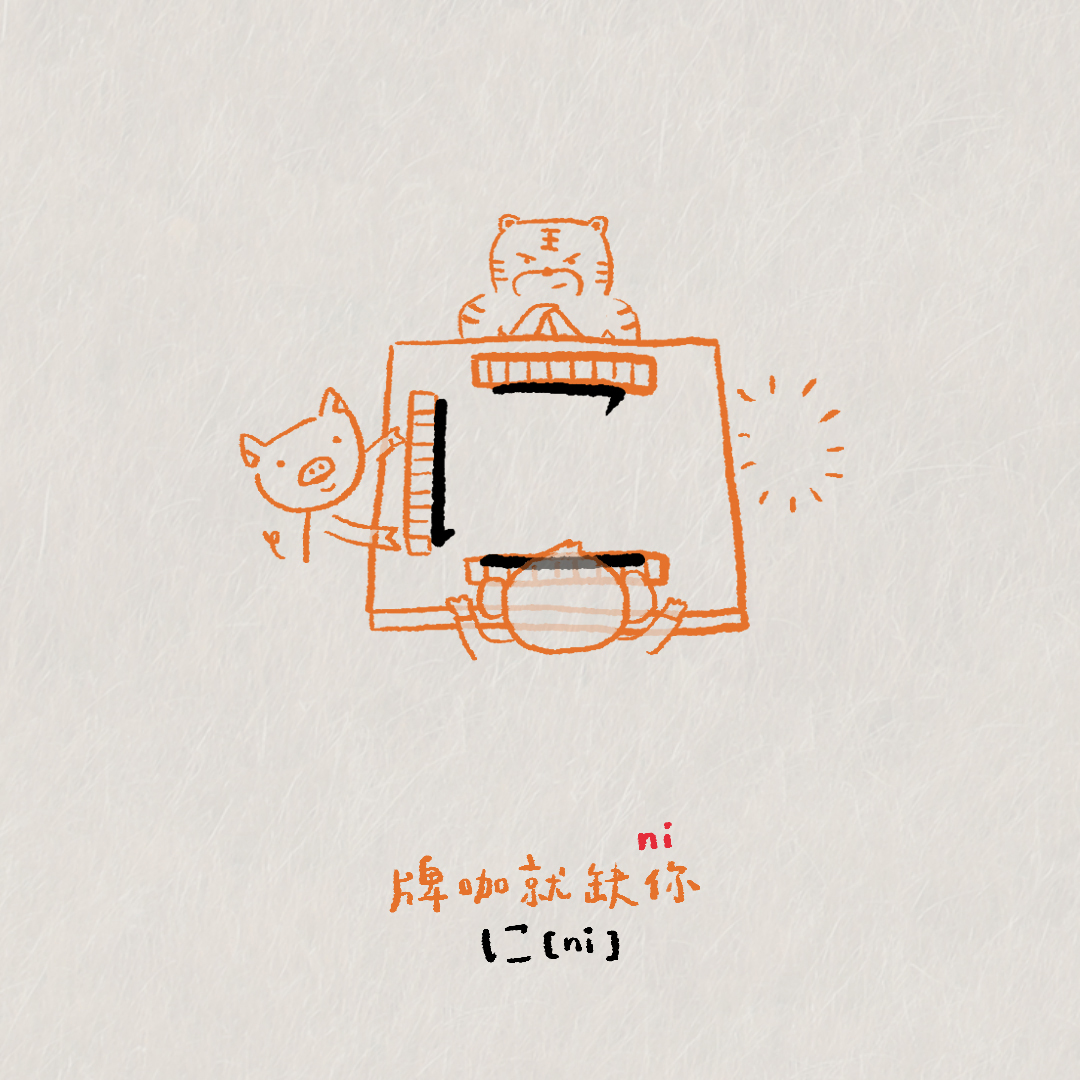 王
ni
牌咖就缺你
に [ni]